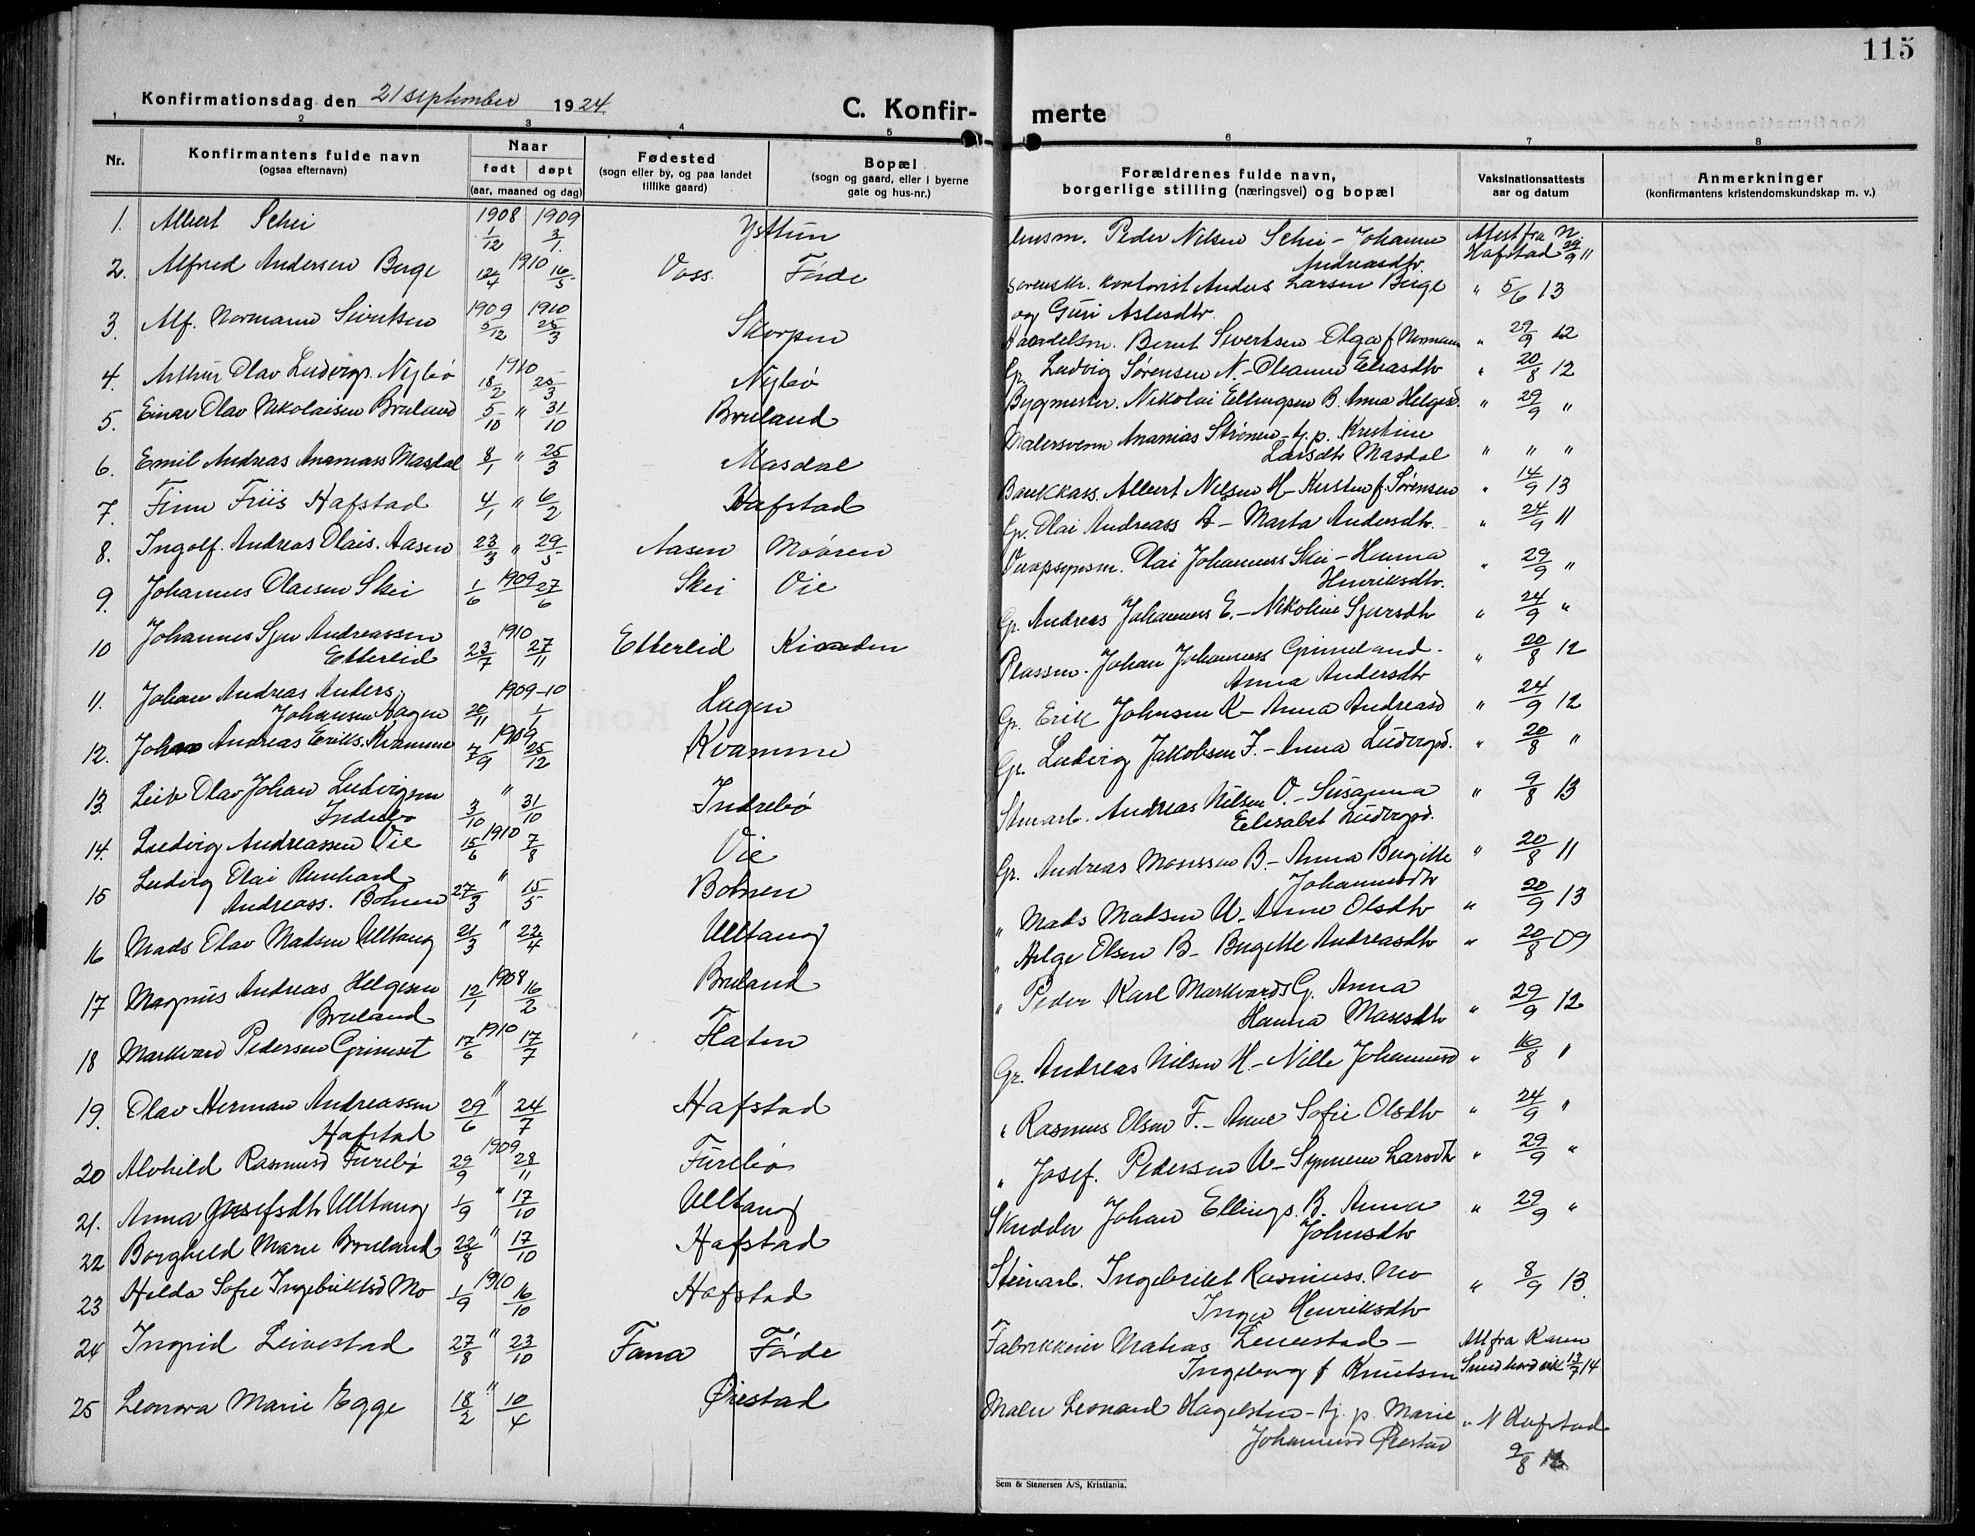 115
Konfirmationsdag den 21 september 1924
C. Konfir-
merte
1 2 3 4 5 6 7 8
Nr.
Konfirmantens fulde navn
(ogsaa efternavn)
Naar
født døpt
(aar, maaned og dag)
Fødested
(sogn eller by, og paa landet
tillike gaard)
Bopæl
(sogn og gaard, eller i byerne
gate og hus-nr.)
Forældrenes fulde navn,
borgerlige stilling (næringsvei) og bopæl
Vaksinationsattests
aar og datum
Anmerkninger
(konfirmantens kristendomskundskap m. v.)
1. Albert Schei 1908 1/12 1909 3/1. Ysttun
2. Alfred Andersen Berge 1910 12/4 16/5 Voss Førde
3. Alf. Normann Sivertsen 1909 5/12 1910 25/3 Skorpen
4. Arthur Olav Ludvigs. Nybø 1910 18/2 25/3 Nybø
5. Einar Olav Nikolaisen Bruland 5/10 " 31/10 Bruland
6. Emil Andreas Ananiass Masdal 8/1 " 25/3 Masdal
7. Finn Friis Hafstad 4/1 " 6/2 Hafstad
8. Ingolf. Andreas Olais. Aasen 23/3 " 29/5 Aasen
9. Johannes Olaisen Skei 1/6 1909 27/6 Skei Vie
10 Johannes Sjur Andreassen
Etterlid 23/7 1910 27/11 Etterlid
11. Johan Andreas Anders
Johansen Hagen 20/11 1909-10 1/1 Hagen
12. Johan Andreas Eriks. Kvamme 7/9 1909 25/12 Kvamme
13. Leiv Olav Johan Ludvigsen
Indrebø 3/10 " 31/10 Indrebø
14. Ludvig Andreassen Vie 15/6 1910 7/8 Vie
15 Ludvig Olai Reinhard
Andreass. Bolsen 27/3 " 15/5
16 Mads Olav Madsen Ulltang 21/3 " 22/4 Ulltang
17 Magnus Andreas Helgesen
Bruland 12/1 1908 16/2 Bruland
18 Markvard Pedersen Grimset 17/6 1910 17/7 Flaten
19. Olav Herman Andreassen
Hafstad 29/6 " 24/7 Hafstad
20 Alvhild Rasmusd Furebø 29/9 1909 28/11 Furebø
21. Anna Josefsdtr Ulltang 1/9 " 17/10 Ulltang
22 Borghild Marie Bruland 22/8 " 17/10 Hafstad
23 Helda Sofie Ingebriktsd Mo 1/9 1910 16/10 Hafstad
24 Ingrid Leivestad 27/8 " 23/10 Fana Førde
25 Leonora Marie Egge 18/2 " 10/4 Ørestad
Peder Nilsen Schei - Johanne
Andreasdtr. Attest fra N. Hafstad 29/9 11
Sorenskr. kontorist Anders Larsen Berge
og Guri Aslesdtr. " 5/6 13
Bernt Sivertsen Olga f Normann " 29/9 12
Gr. Ludvig Sørensen N. - Oleanne Eliasdtr " 20/8 12
Bygmester. Nikolai Ellingsen B. Anna Helges. " 29/9 "
Malersvenn Ananias Strønen - tj. p. Kristine
Larsdtr Masdal " " "
Bankkass. Albert Nilsen H - Kirsten f. Sørensen " 14/9 13
Gr. Olai Andreass A - Marta Andersdtr. " 24/9 11
Olai Johanness Skei - Hanna
Henriksdtr. " 29/9 "
Gr. Andreas Johanness E. - Nikoline Sjursdtr " 24/9 "
Plassm. Johan Johanness Grimeland -
Anna Andersdtr " 20/8 12
Gr. Erik Johnsen K - Anna Andreasd " 24/9 12
Gr. Ludvig Jakobsen I. - Anna Ludvigsd. " 20/8 "
Stenarb. Andreas Nilsen V. - Susanna
Elisabet Ludvigsd. " 9/8 13
Gr. Andreas Monssen B - Anna Birgitte
Johannesdtr " 20/8 11
" Mads Madsen U. Anne Olsdtr " 20/9 13
" Helge Olsen B - Birgitte Andreasdtr " 20/8 09
" Peder Karl Markvards G. Anna
Hanna Masesdtr " 29/9 12
Gr. Andreas Nilsen H. - Nille Johannesd " 16/8 "
" Rasmus Olsen F. - Anne Sofie Olsdtr " 24/9 "
" Josef. Pedersen U - Synneve Larsdtr " 29/9 "
Skredder Johan Ellings. B. Anna
Johnsdtr " 29/9 "
Steinarb. Ingebrikt Rasmuss. Mo
Inger Henriksdtr " 8/9 13.
Matias Leivestad -
Ingeborg f Knutsen Att fra Karen
13/7 14
Maler Leonard Hagelsten - tj. p. Marie
Johannesd Ørestad " N Hafstad
9/8
Sem & Stenersen A/S, Kristiania.